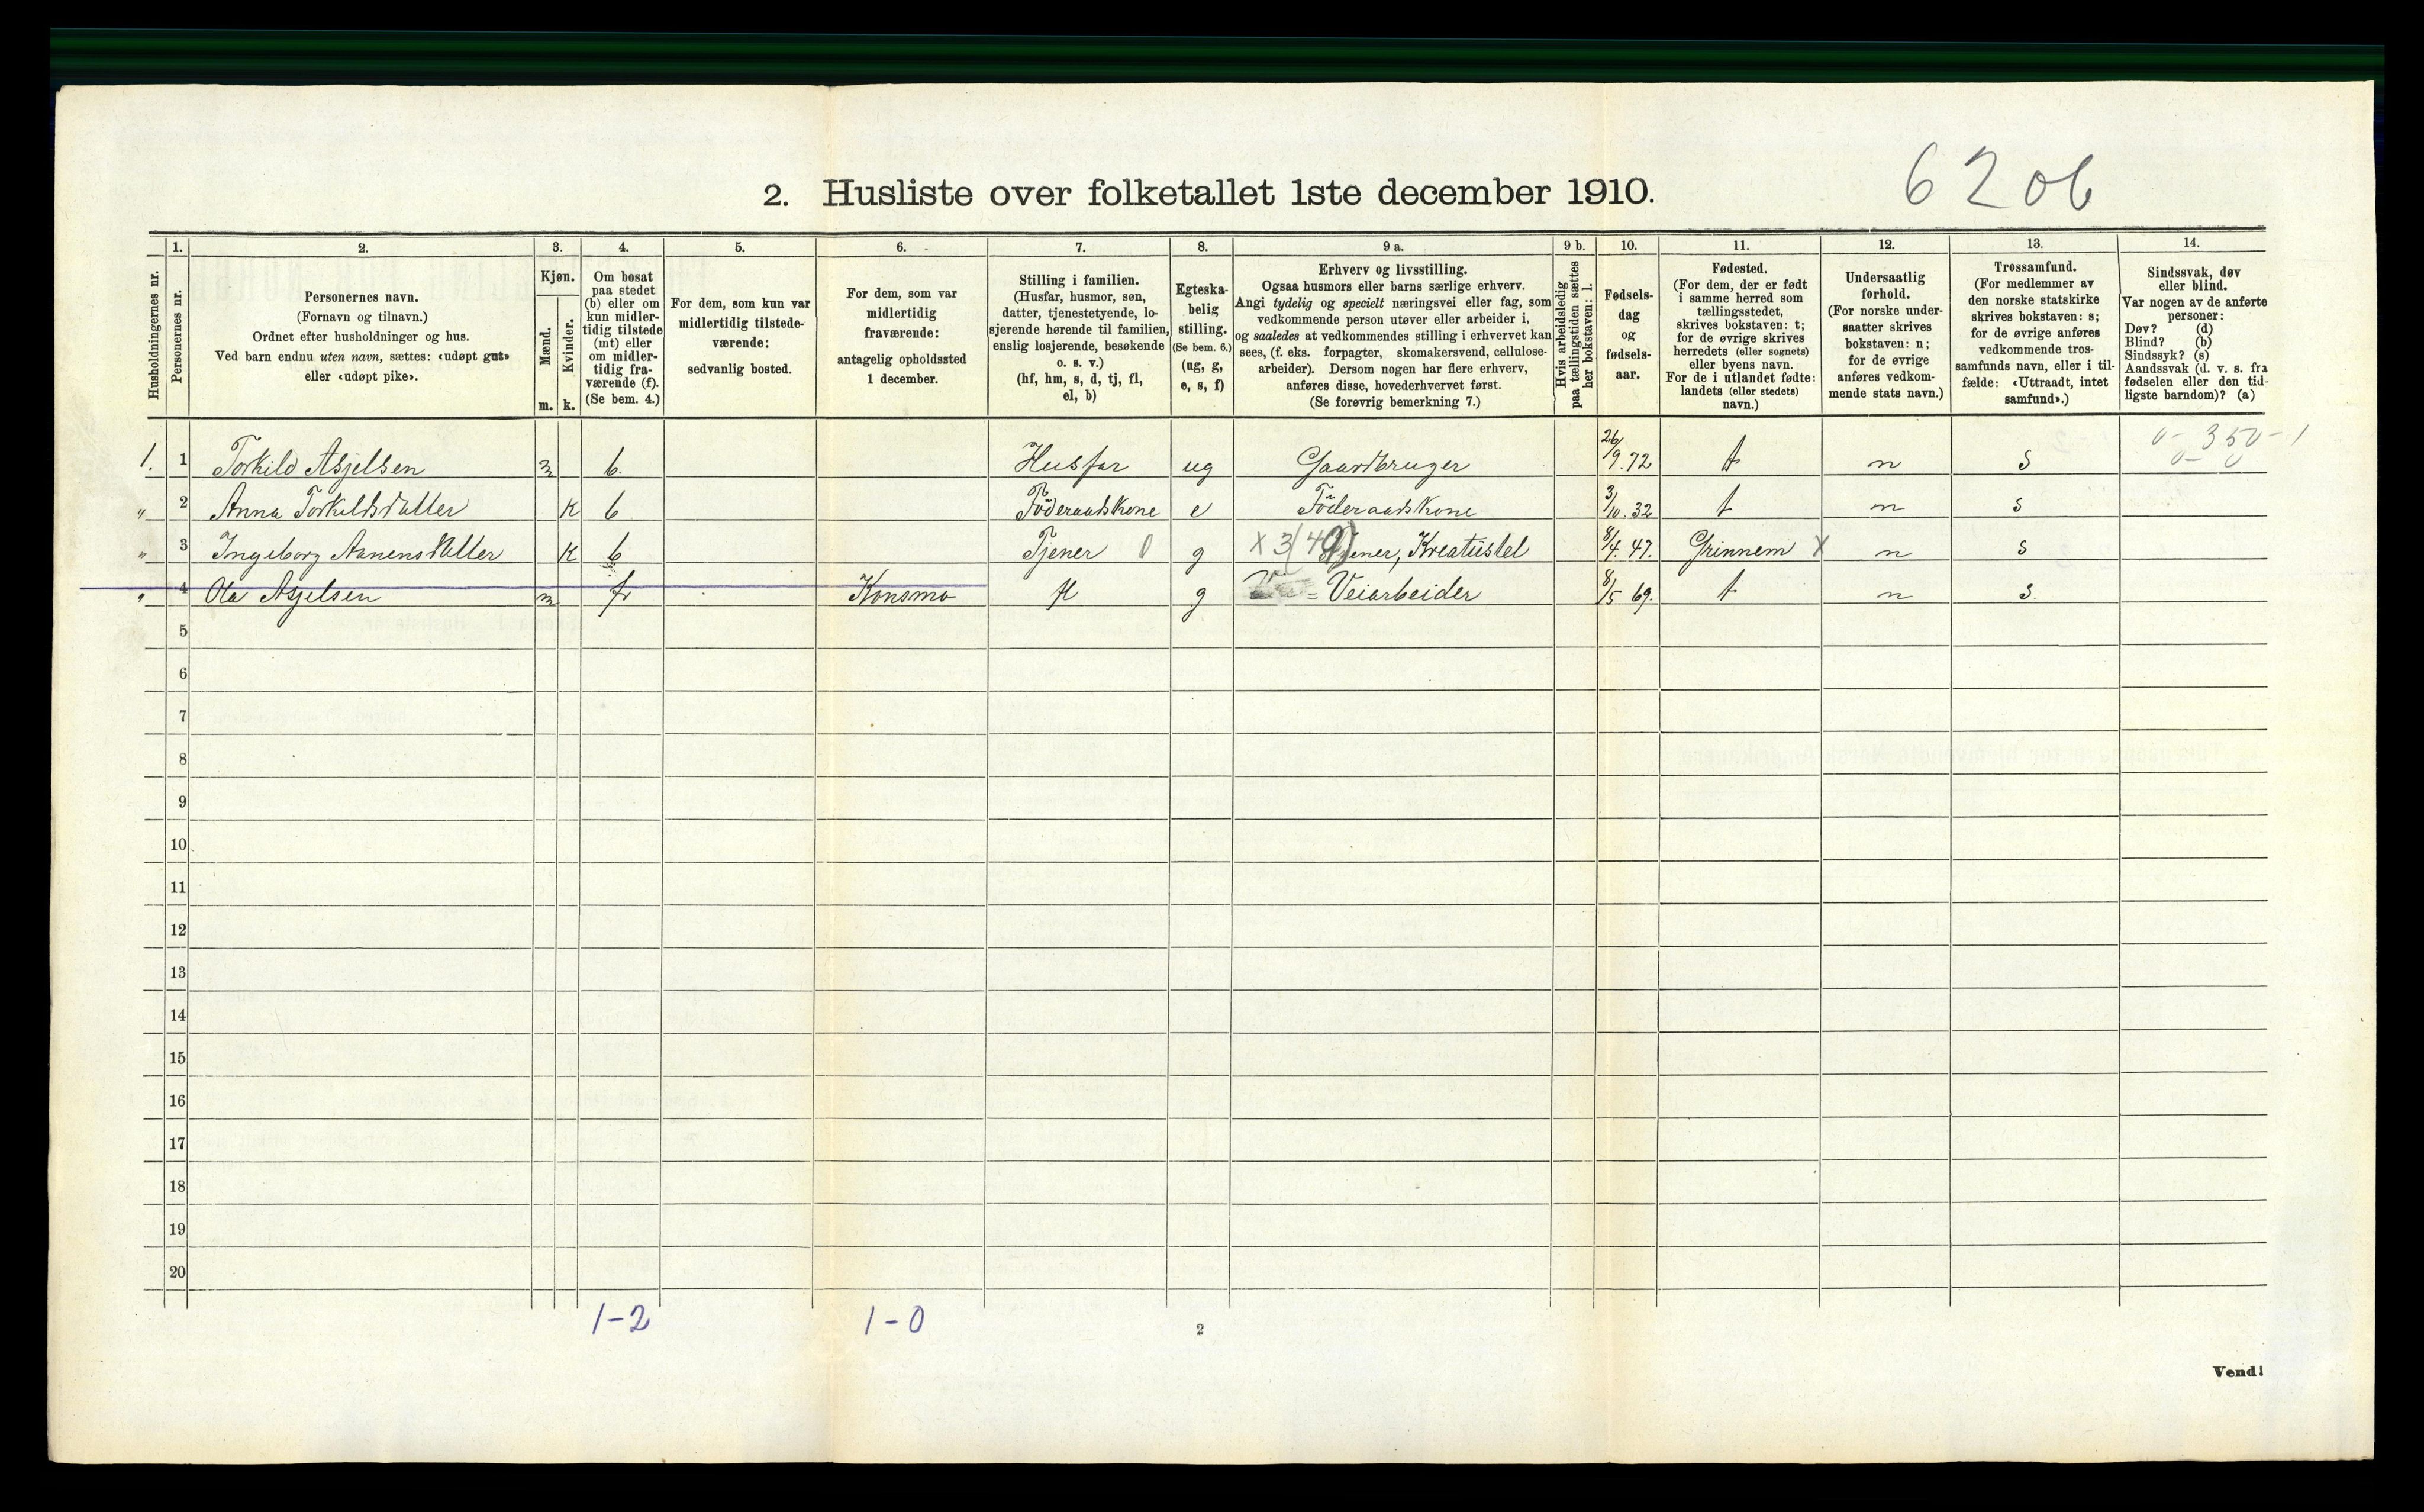 6206
2. Husliste over folketallet 1ste december 1910.
Husholdningernes nr.
1.
Personernes nr.
2.
Personernes navn.
(Fornavn og tilnavn.)
Ordnet efter husholdninger og hus.
Ved barn endnu uten navn, sættes: «udøpt gut»
eller «udøpt pike».
3.
Kjøn.
Mænd.
m.
Kvinder.
k.
4.
Om bosat
paa stedet
(b) eller om
kun midler-
tidig tilstede
(mt) eller
om midler-
tidig fra-
værende (f).
(Se bem. 4.)
5.
For dem, som kun var
midlertidig tilstede-
værende:
sedvanlig bosted.
6.
For dem, som var
midlertidig
fraværende:
antagelig opholdssted
1 december.
7.
Stilling i familien.
(Husfar, husmor, søn,
datter, tjenestetyende, lo-
sjerende hørende til familien,
enslig losjerende, besøkende
o. s. v.)
(hf, hm, s, d, tj, fl,
el, b)
8.
Egteska-
belig
stilling.
(Se bem. 6.)
(ug, g,
e, s, f)
9 a.
Erhverv og livsstilling.
Ogsaa husmors eller barns særlige erhverv.
Angi tydelig og specielt næringsvei eller fag, som
vedkommende person utøver eller arbeider i,
og saaledes at vedkommendes stilling i erhvervet kan
sees, (f. eks. forpagter, skomakersvend, cellulose-
arbeider). Dersom nogen har flere erhverv,
anføres disse, hovederhvervet først.
(Se forøvrig bemerkning 7.)
9 b.
Hvis arbeidsledig
paa tællingstiden sættes
her bokstaven: l.
10.
Fødsels-
dag
og
fødsels-
aar.
11.
Fødested.
(For dem, der er født
i samme herred som
tællingsstedet,
skrives bokstaven: t;
for de øvrige skrives
herredets (eller sognets)
eller byens navn.
For de i utlandet fødte:
landets (eller stedets)
navn.)
12.
Undersaatlig
forhold.
(For norske under-
saatter skrives
bokstaven: n;
for de øvrige
anføres vedkom-
mende stats navn.)
13.
Trossamfund.
(For medlemmer av
den norske statskirke
skrives bokstaven: s;
for de øvrige anføres
vedkommende tros-
samfunds navn, eller i til-
fælde: «Uttraadt, intet
samfund».)
14.
Sindssvak, døv
eller blind.
Var nogen av de anførte
personer:
Døv? (d)
Blind? (b)
Sindssyk? (s)
Aandssvak (d. v. s. fra
fødselen eller den tid-
ligste barndom)? (a)
1. 1 Torkild Asjelsen m b. Husfar ug Gaardbruger 26/9.72 t n s 0-350-1
0- 0
" 2 Anna Torkildsdatter K b Föderaadskone e Föderaadskone 3/10.32 t n s
" 3 Ingeborg Aanensdatter K b Tjener 0 g X 3(40) Tjener, Kreatustel 8/4.47. Grinnem X n s
" 4 Ola Asjelsen m fr Konsmo fl g = Veiarbeider 8/5 69. t n s.
5
6
7
8
9
10
11
12
13
14
15
16
17
18
19
20
1-2 1-0
2
Vend!